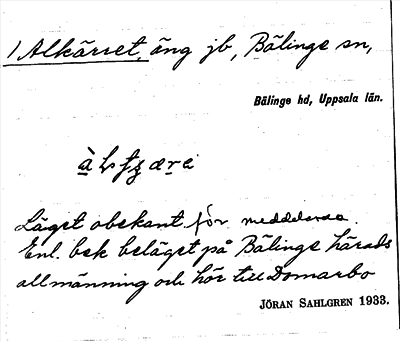 1 Alkärret, äng jb, Bälinge sn,
Bälinge hd, Uppsala län.
Läget obekant för meddelarna.
Enl. bek beläget på Bälinge härads
allmänning och hör till Domarbo
JÖRAN SAHLGREN 1933.